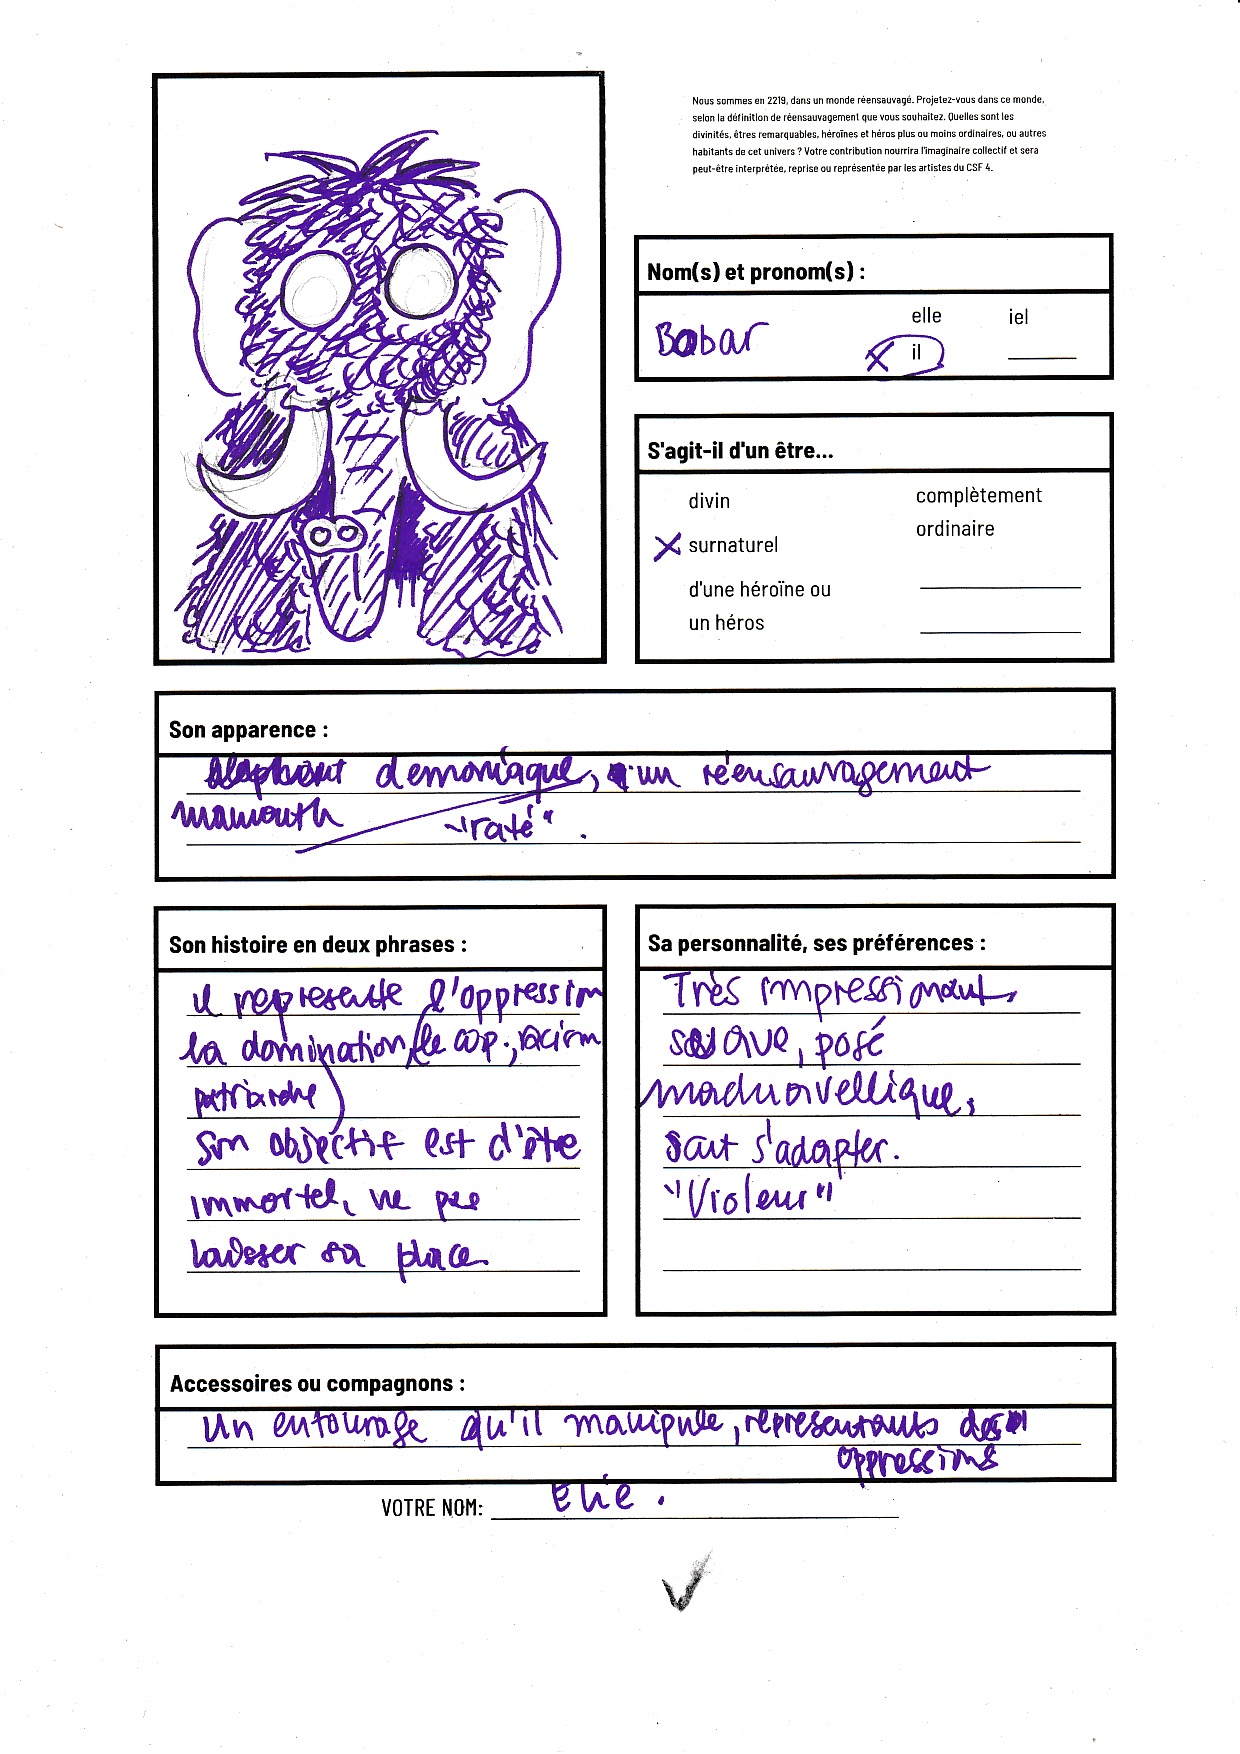 Nous sommes en 2219, dans un monde réensauvagé. Projetez-vous dans ce monde,
selon la définition de réensauvagement que vous souhaitez. Quelles sont les
divinités, êtres remarquables, héroïnes et héros plus ou moins ordinaires, ou autres
habitants de cet univers ? Votre contribution nourrira l'imaginaire collectif et sera
peut-être interprétée, reprise ou représentée par les artistes du CSF 4.
Nom(s) et pronom(s) :
Babar
elle iel
il
S'agit-il d'un être...
divin
complètement
ordinaire
surnaturel
d'une héroïne ou
un héros
Son apparence :
demoniaque, un réensauvagement
mamouth "raté".
Son histoire en deux phrases :
il represente l'oppression
la domination (le cap., racism
patriarche)
Son objectif est d'être
immortel, ne pas
laisser sa place.
Sa personnalité, ses préférences :
Très impressionant,
suave, posé
machiavellique,
sait s'adapter.
"Violeur"
Accessoires ou compagnons :
Un entourage qu'il manipule, representants des
oppressions
VOTRE NOM: Elie.